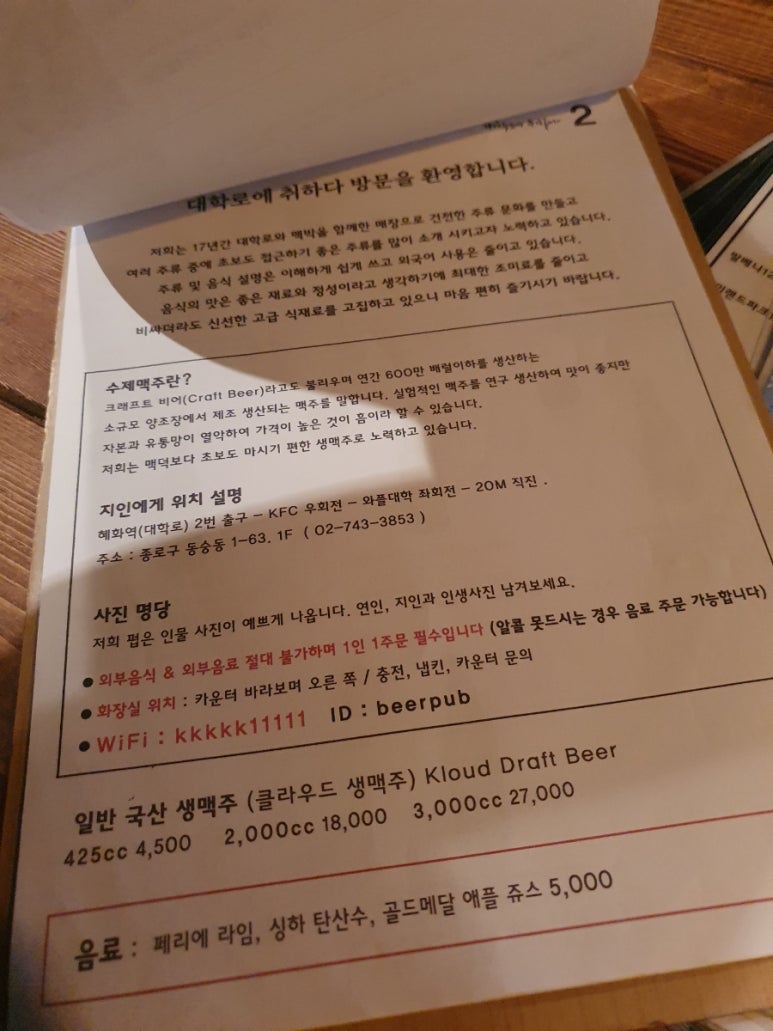 2
대학로에 취하다 방문을 환영합니다.
저희는 17년간 대학로와 맥박을 함께한 매장으로 건전한 주류 문화를 만들고
여러 주류 중에 초보도 접근하기 좋은 주류를 많이 소개 시키고자 노력하고 있습니다.
주류 및 음식 설명은 이해하게 쉽게 쓰고 외국어 사용은 줄이고 있습니다.
음식의 맛은 좋은 재료와 정성이라고 생각하기에 최대한 조미료를 줄이고
비싸더라도 신선한 고급 식재료를 고집하고 있으니 마음 편히 즐기시기 바랍니다.
수제맥주란?
크래프트 비어(Craft Beer)라고도 불리우며 연간 600만 배럴이하를 생산하는
소규모 양조장에서 제조 생산되는 맥주를 말합니다. 실험적인 맥주를 연구 생산하여 맛이 좋지만
자본과 유통망이 열악하여 가격이 높은 것이 흠이라 할 수 있습니다.
저희는 맥덕보다 초보도 마시기 편한 생맥주로 노력하고 있습니다.
지인에게 위치 설명
혜화역(대학로) 2번 출구 - KFC 우회전 - 와플대학 좌회전 - 20M 직진 .
주소 : 종로구 동숭동 1-63. 1F ( 02-743-3853 )
사진 명당
저희 펍은 인물 사진이 예쁘게 나옵니다. 연인, 지인과 인생사진 남겨보세요.
● 외부음식 & 외부음료 절대 불가하며 1인 1주문 필수입니다 (알콜 못드시는 경우 음료 주문 가능합니다)
● 화장실 위치 : 카운터 바라보며 오른 쪽 / 충전, 냅킨, 카운터 문의
● WiFi : kkkkk11111 ID : beerpub
일반 국산 생맥주 (클라우드 생맥주) Kloud Draft Beer
425cc 4,500 2,000cc 18,000 3,000cc 27,000
음료 : 페리에 라임, 싱하 탄산수, 골드메달 애플 쥬스 5,000